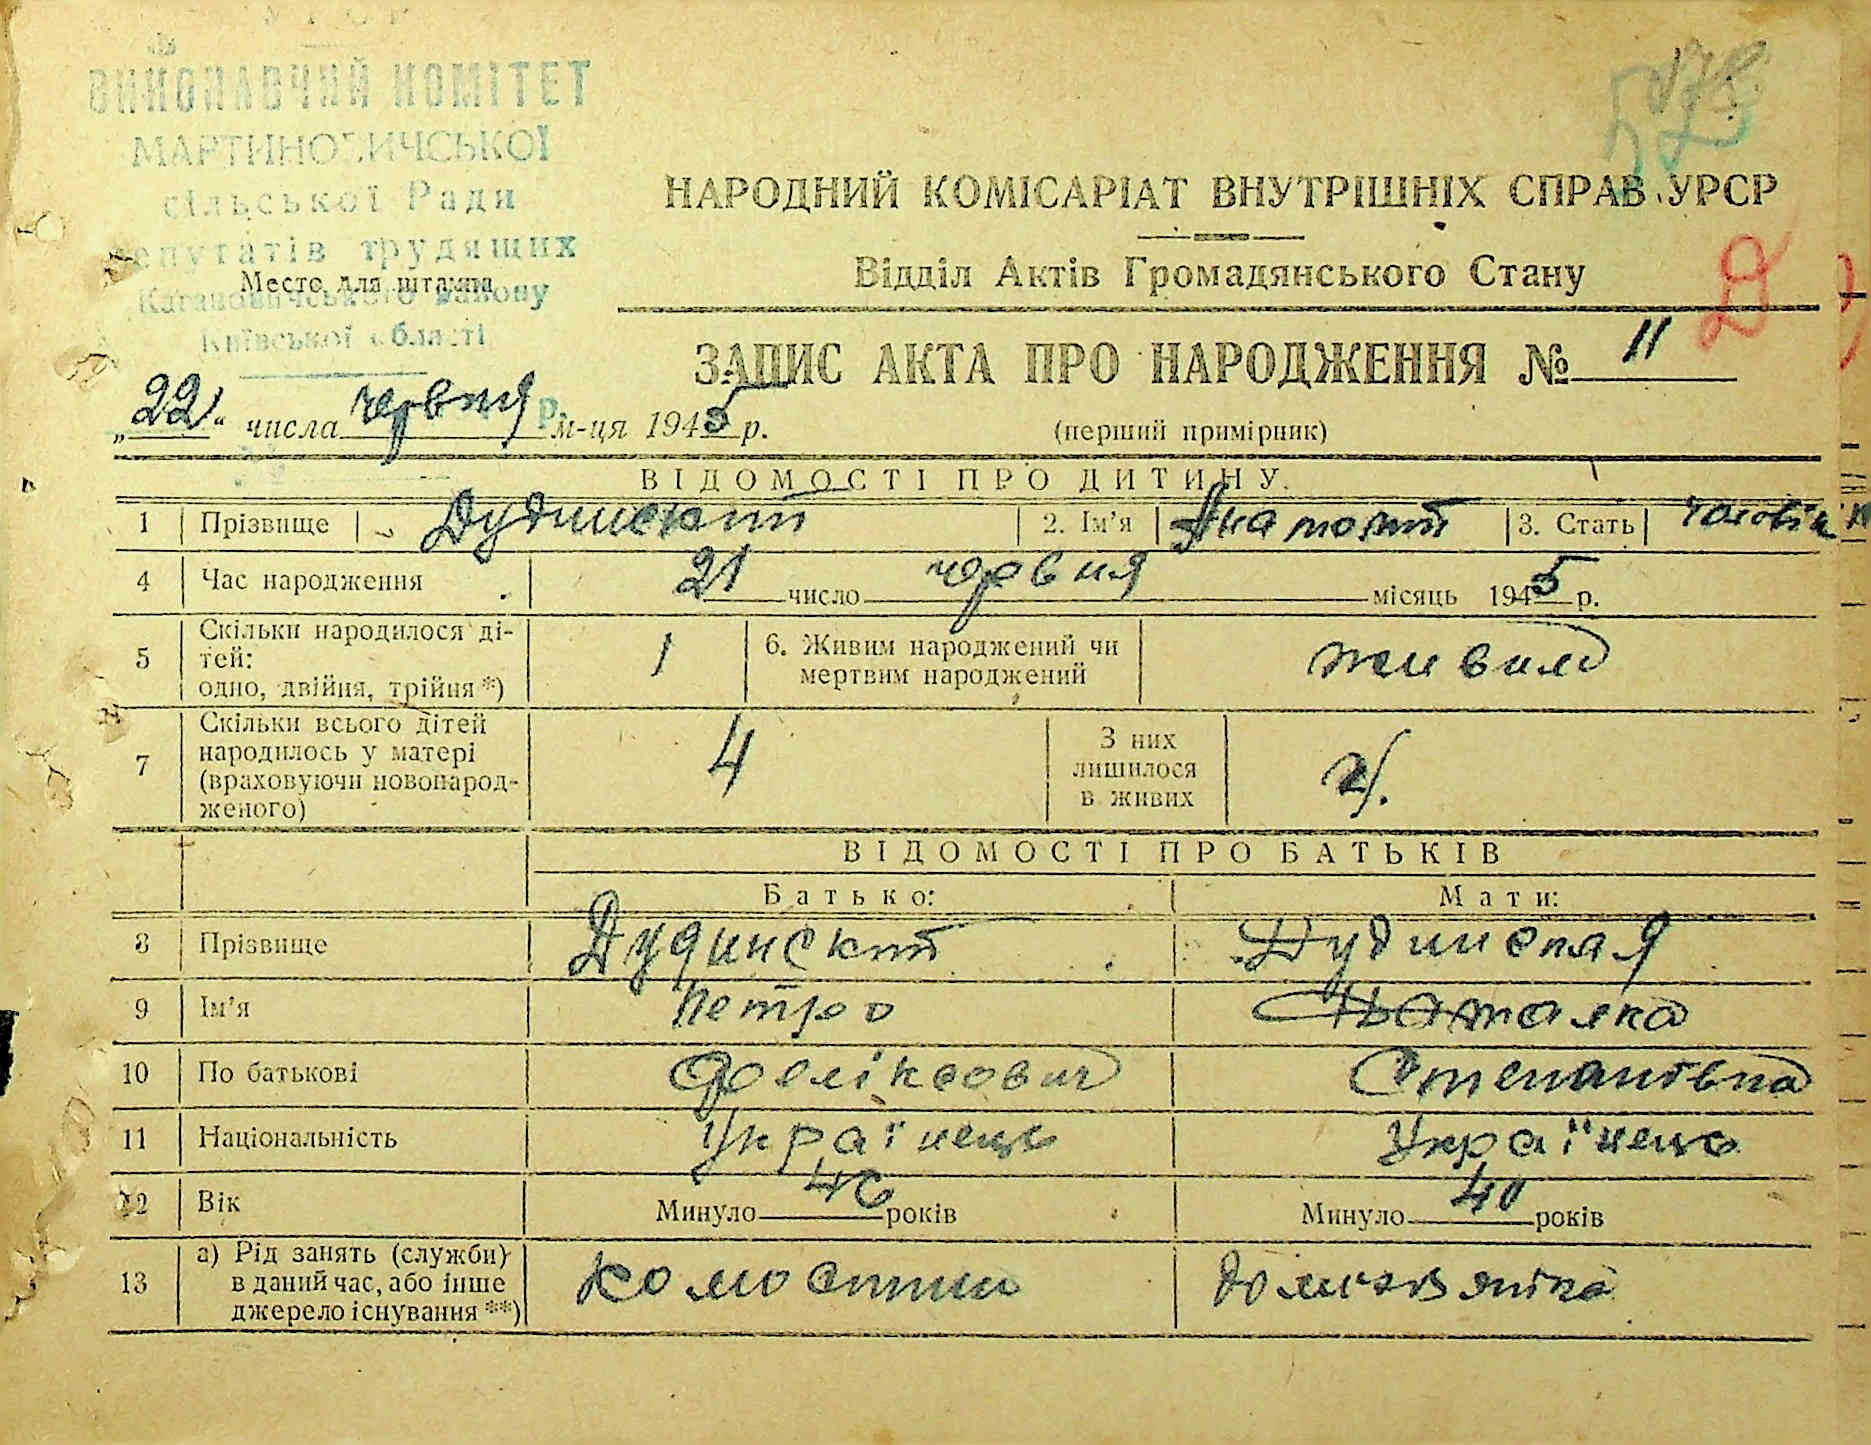 УРСР
ВИКОНАВЧИЙ КОМІТЕТ
МАРТИНОВИЧСЬКОЇ
сільської Ради
депутатів трудящих
Кагановичського району
Київської області
Место для штампа
НАРОДНИЙ КОМІСАРІАТ ВНУТРІШНІХ СПРАВ УРСР
Відділ Актів Громадянського Стану
ЗАПИС АКТА ПРО НАРОДЖЕННЯ № 11
„22“ числа червня м-ця 1945 р.
(перший примірник)
ВІДОМОСТІ ПРО ДИТИНУ.
1 Прізвище Дудинский 2. Ім’я Анатолий 3. Стать чоловіч
4 Час народження 21 число червня місяць 1945 р.
5 Скільки народилося ді-
тей:
одно, двійня, трійня *) 1 6. Живим народжений чи
мертвим народжений живим
7 Скільки всього дітей
народилось у матері
(враховуючи новонарод-
женого) 4 З них
лишилося
в живих
ВІДОМОСТІ ПРО БАТЬКІВ
Батько: Мати:
8 Прізвище Дудинский Дудинская
9 Ім’я Петро Наталка
10 По батькові Феліксович Степанівна
11 Національність Українець Українець
12 Вік Минуло 46 років Минуло 40 років
13 а) Рід занять (служби)
в даний час, або інше
джерело існування **)